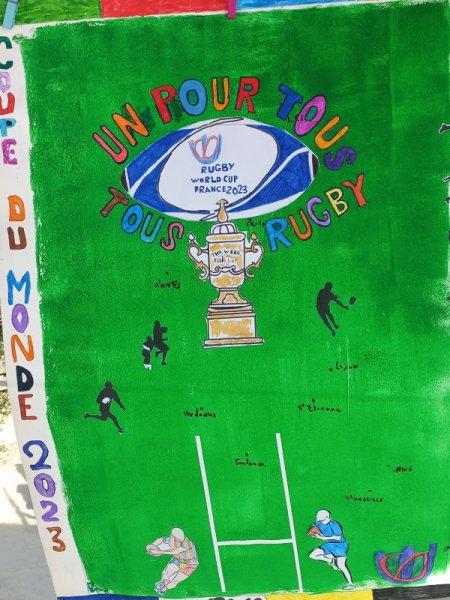 COUPE DU MONDE 2023
UN POUR TOUS
TOUS RUGBY
RUGBY
WORLD CUP
FRANCE 2023
Paris
THE WEBB
ELLIS CUP
Nantes
Lyon
Bordeaux
St Etienne
Toulouse
Nice
Marseille